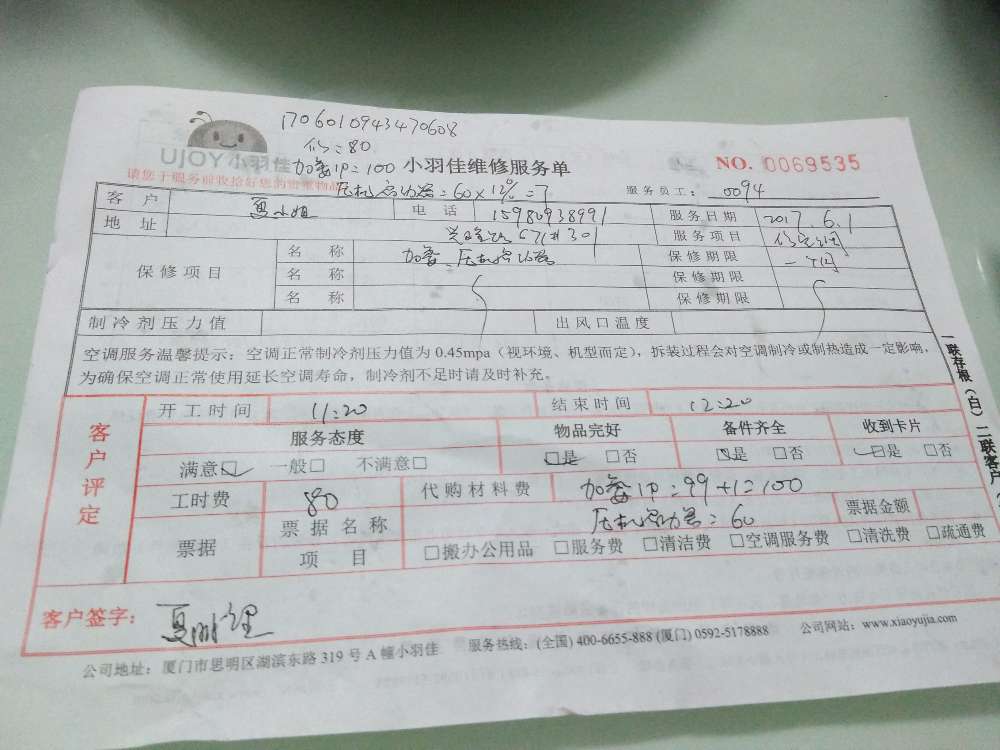 1706010943470608
修:80
UJOY小羽佳
加氟1P:100 小羽佳维修服务单 NO. 0069535
请您于服务前收拾好您的贵重物品
压机启动器:60×12%=7 服务员工: 0094
客户 夏小姐 电话 15980938991 服务日期 2017.6.1
地址 671#301 服务项目 修空调
保修项目 名称 加氟、压机启动器 保修期限 一个月
名称 保修期限
名称 保修期限
制冷剂压力值 出风口温度
空调服务温馨提示:空调正常制冷剂压力值为0.45mpa(视环境、机型而定),拆装过程会对空调制冷或制热造成一定影响,
为确保空调正常使用延长空调寿命,制冷剂不足时请及时补充。
一联存根(白)二联客户
客户评定
开工时间 11:20 结束时间 12:20
服务态度 物品完好 备件齐全 收到卡片
满意☑ 一般□ 不满意□ ☑是 □否 ☑是 □否 ☑是 □否
工时费 80 代购材料费 加氟1P:99+1=100
压机启动器:60
票据 票据名称 票据金额
项目 □搬办公用品 □服务费 □清洁费 □空调服务费 □清洗费 □疏通费
客户签字: 夏
公司地址:厦门市思明区湖滨东路319号A幢小羽佳 服务热线:(全国)400-6655-888(厦门)0592-5178888 公司网站:www.xiaoyujia.com